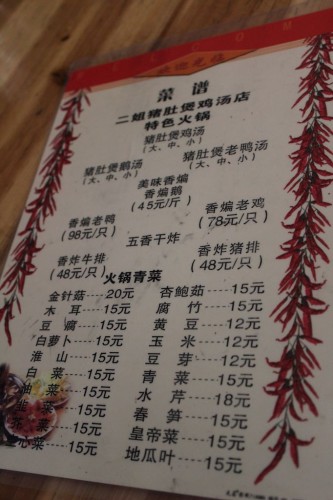 菜 谱
二姐猪肚煲鸡汤店
特色火锅
猪肚煲鸡汤
(大、中、小)
猪肚煲鹅汤
(大、中、小)
猪肚煲老鸭汤
(大、中、小)
美味香煸
香煸鹅
(45元/斤)
香煸老鸭
(98元/只)
香煸老鸡
(78元/只)
五香干炸
香炸牛排
(48元/只)
香炸猪排
(48元/只)
火锅青菜
金针菇----20元 杏鲍茹----15元
木 耳----15元 腐 竹----15元
豆 腐----15元 黄 豆----12元
白萝卜----15元 玉 米----12元
淮 山----15元 豆 芽----12元
白 菜----15元 青 菜----15元
油 菜----15元 水 芹----18元
菜----15元 春 笋----15元
菜----15元 皇帝菜----15元
菜----15元 地瓜叶----15元